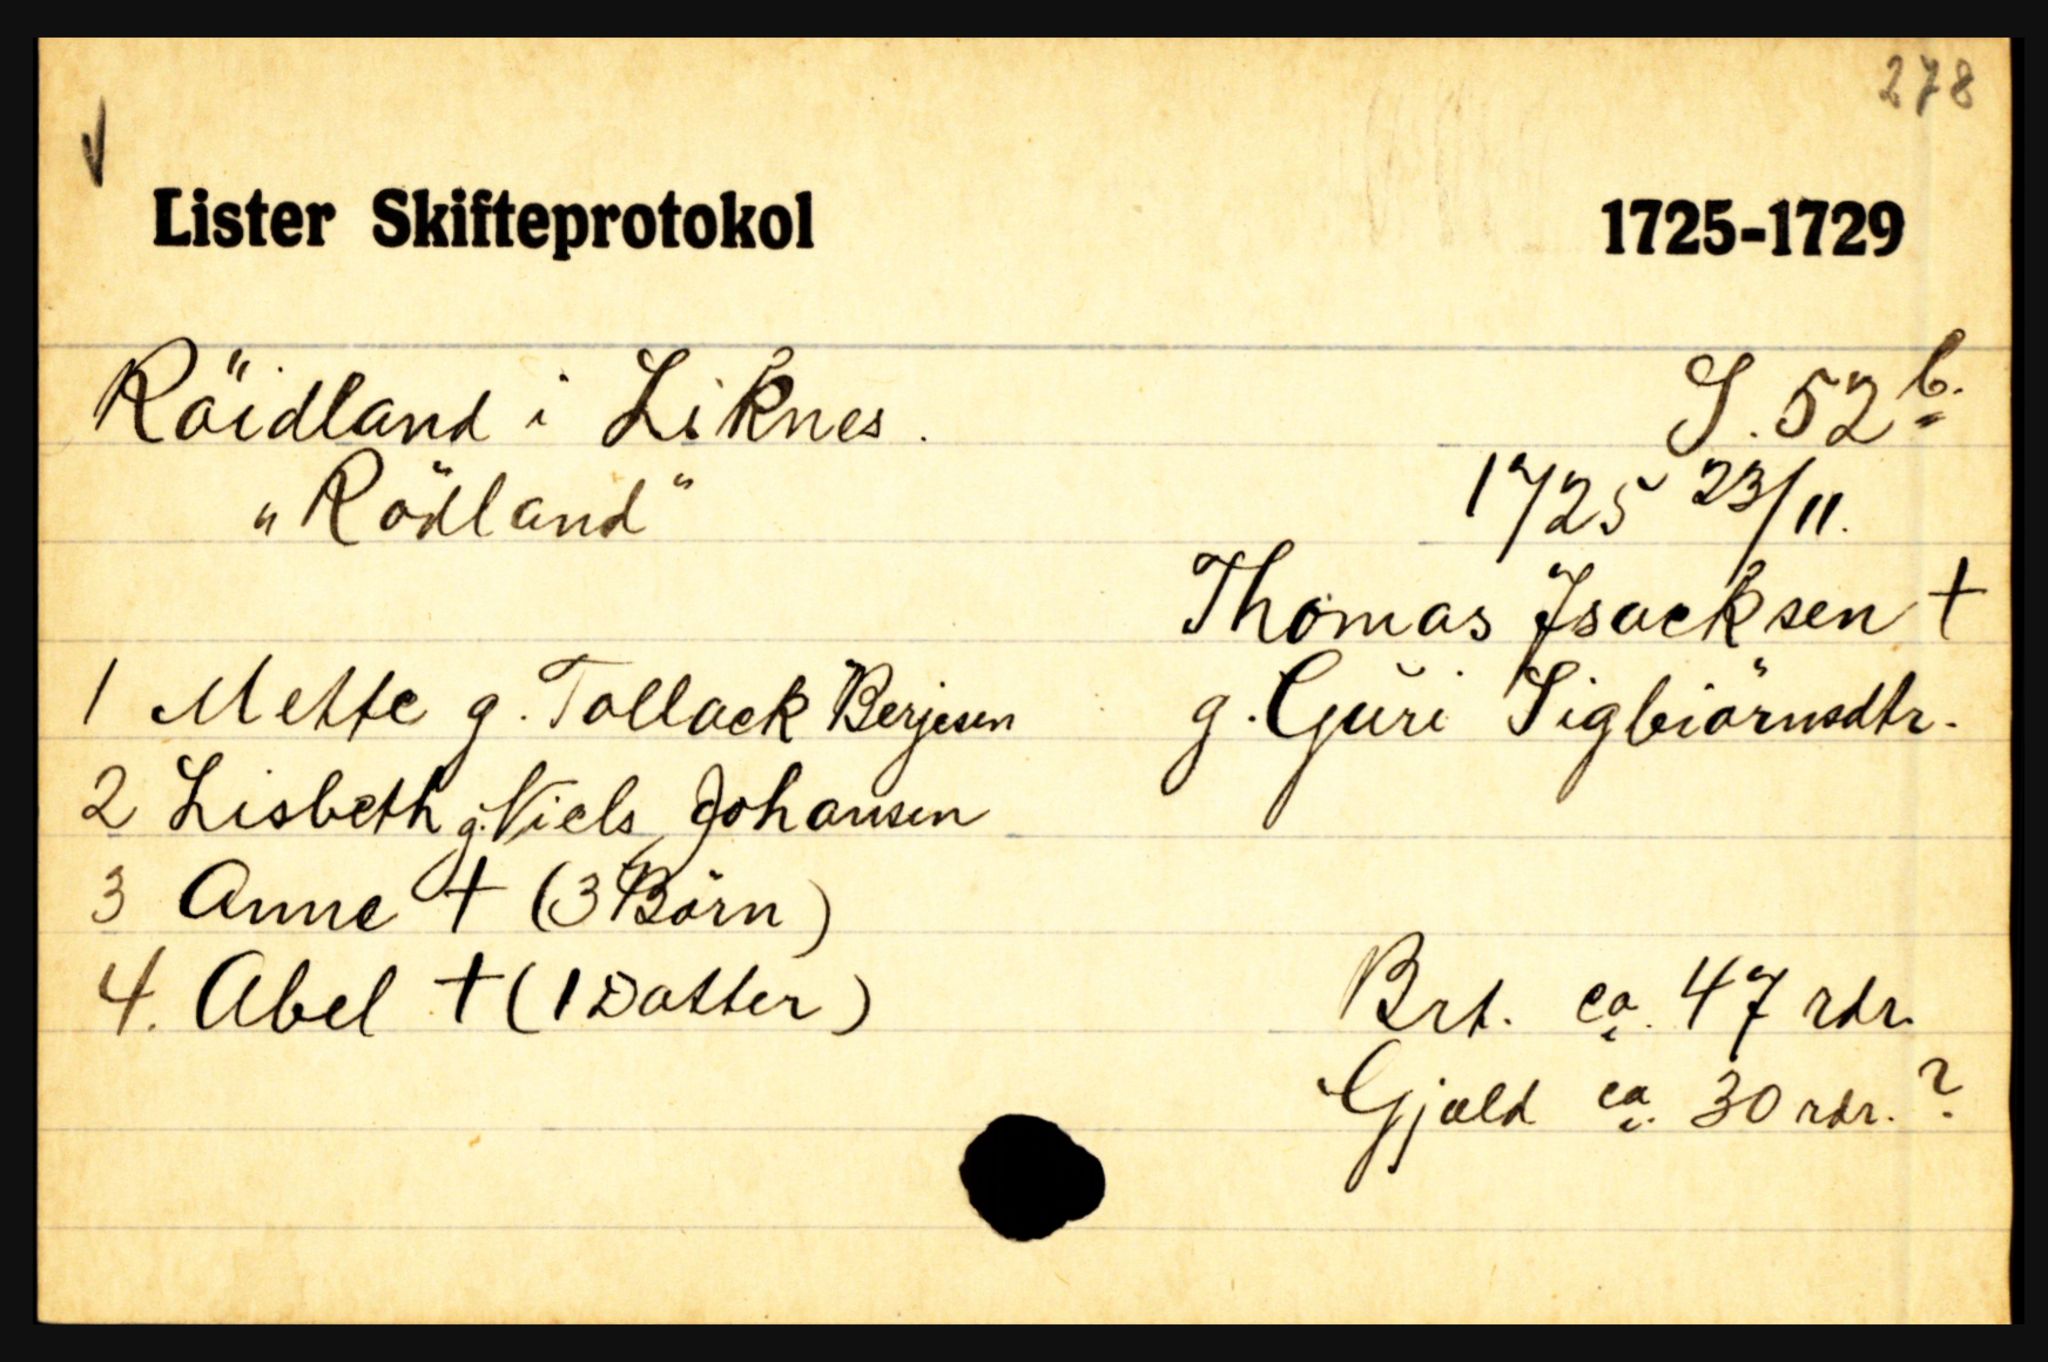 278
Lister Skifteprotokol 1725-1729
Röidland i Liknes. S. 52 b.
"Rödland" 1725 23/11.
Thomas Isacksen +
1 Mette g. Tollack Berjesen g. Guri Sigbiörnsdtr.
2 Lisbeth g. Niels Johansen
3 Anne + (3 Börn)
4. Abel + (1 Datter) Brt. ca. 47 rdr.
Gjæld ca. 30 rdr.?